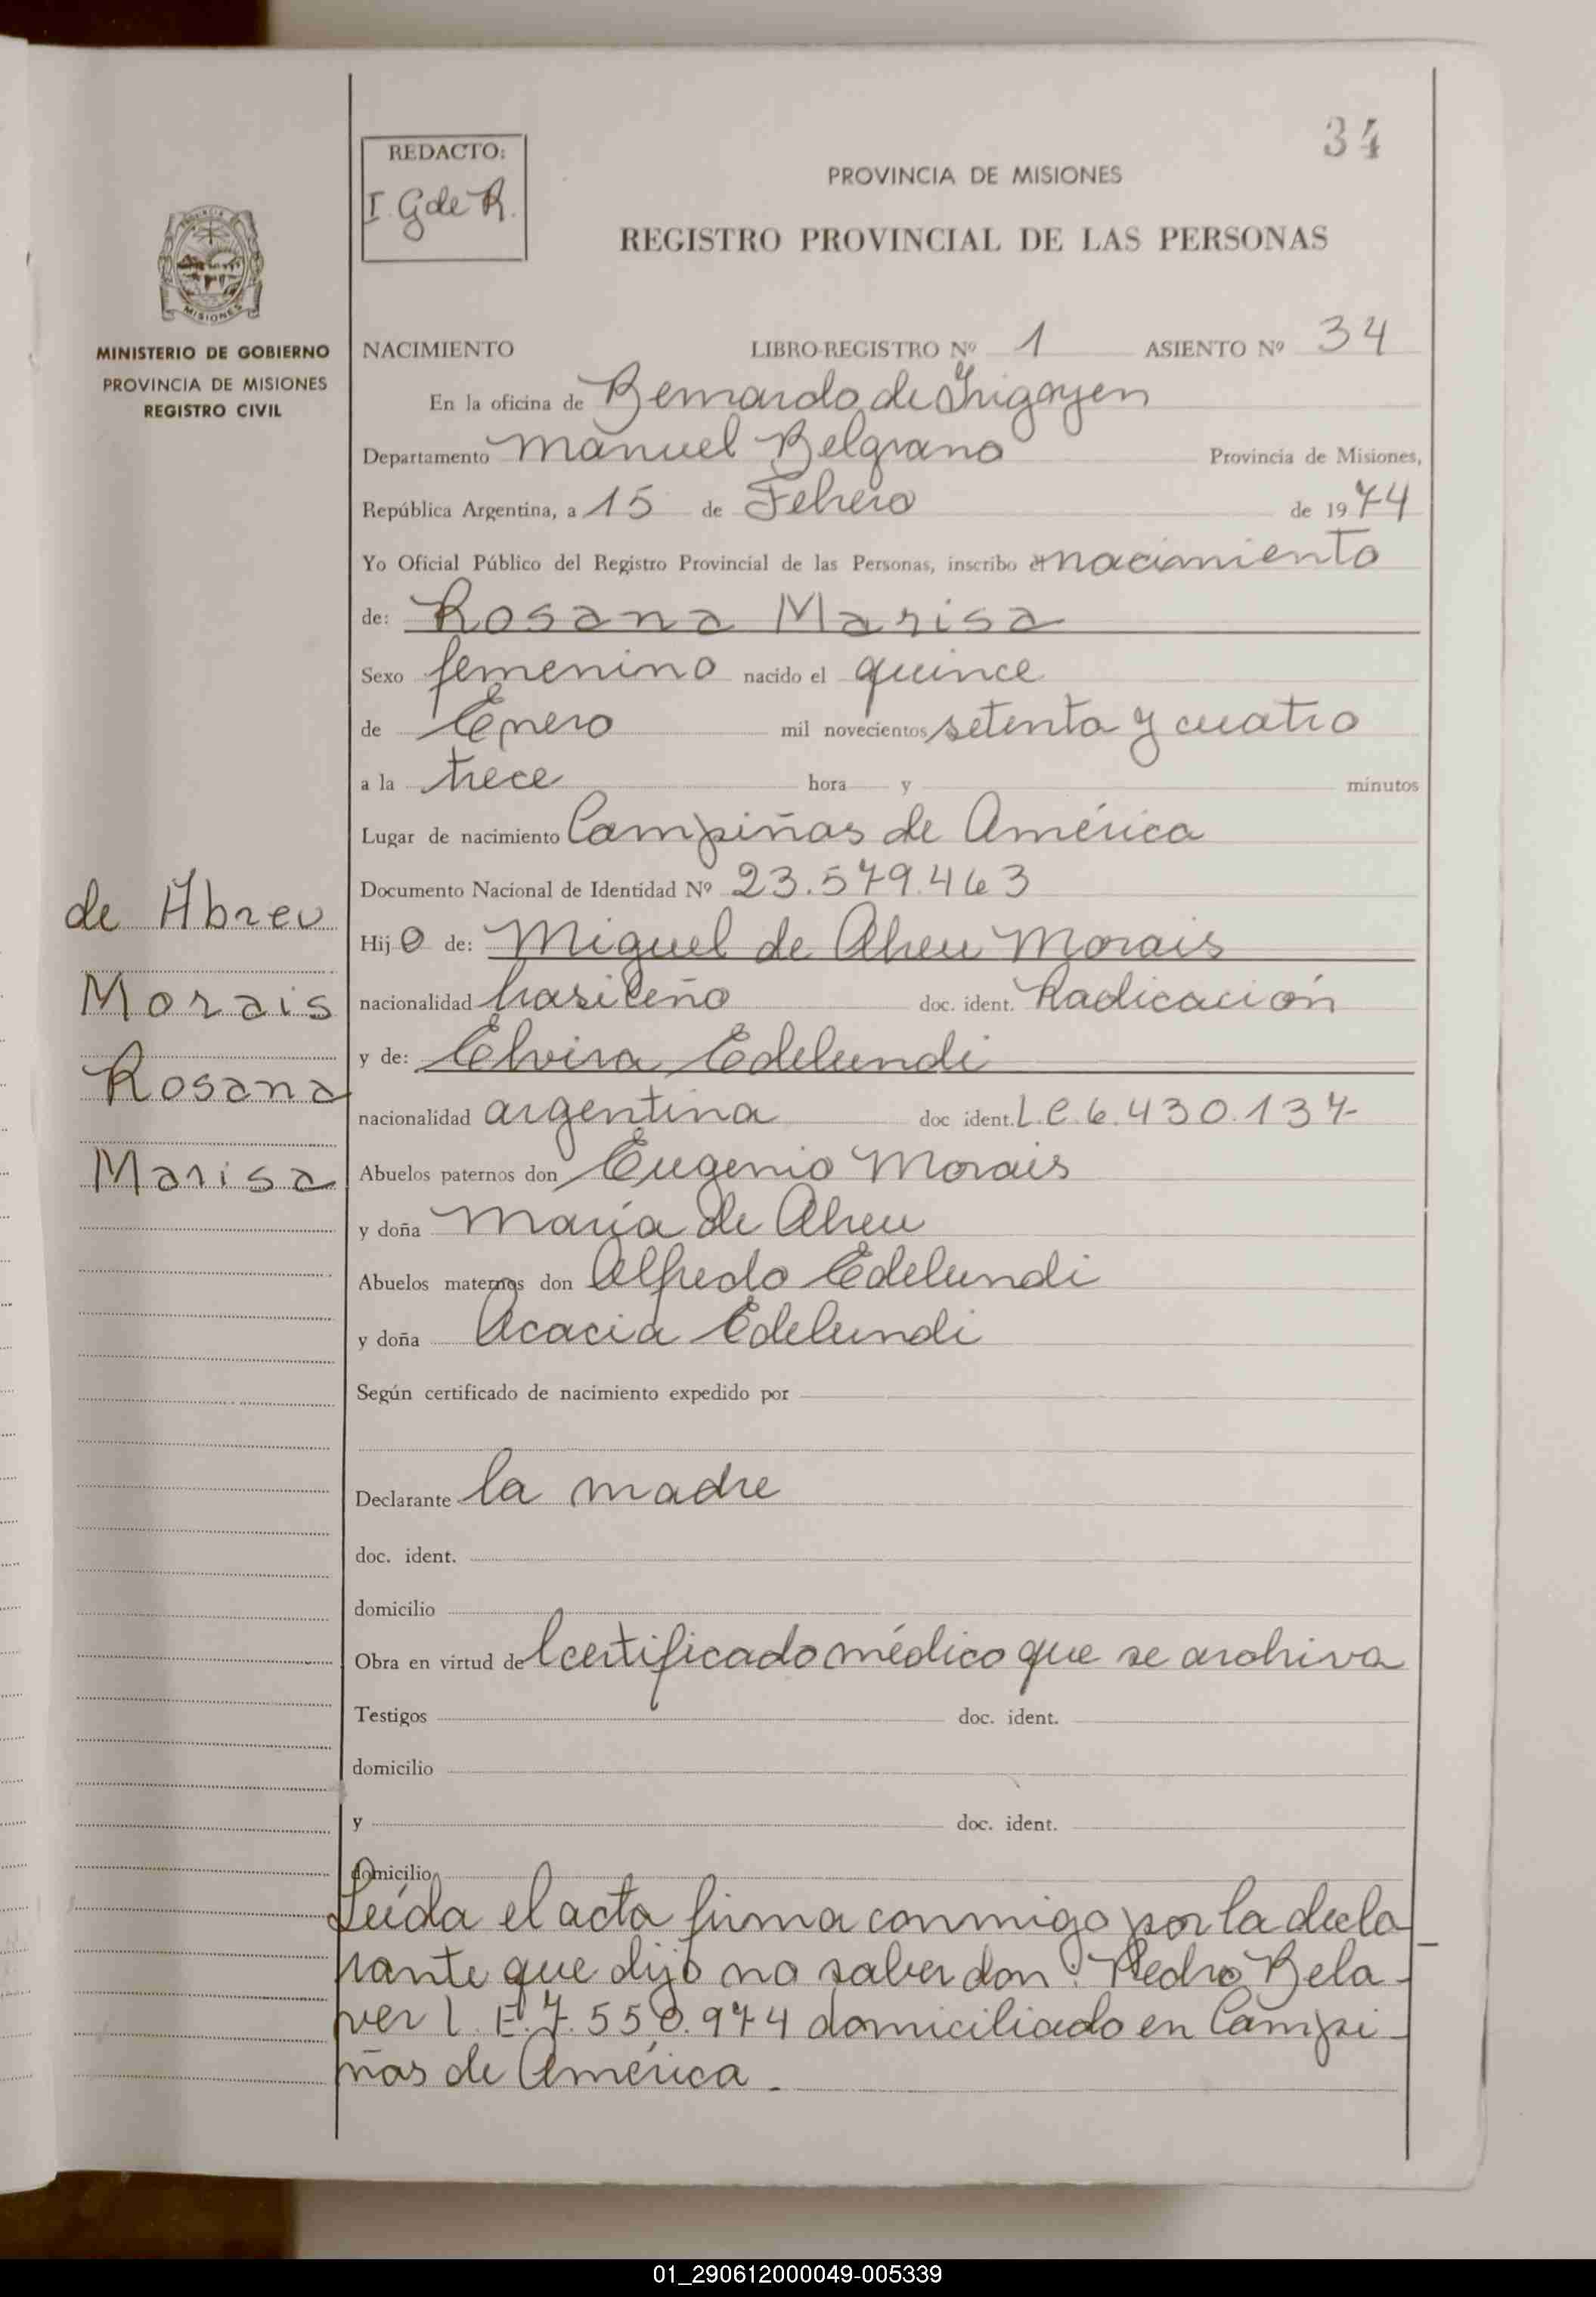 34
REDACTO:
I. G de R.
PROVINCIA DE MISIONES
REGISTRO PROVINCIAL DE LAS PERSONAS
MISIONES
MINISTERIO DE GOBIERNO
PROVINCIA DE MISIONES
REGISTRO CIVIL
NACIMIENTO LIBRO-REGISTRO Nº 1 ASIENTO Nº 34
En la oficina de Bernardo de Irigoyen
Departamento Manuel Belgrano Provincia de Misiones,
República Argentina, a 15 de Febrero de 1974
Yo Oficial Público del Registro Provincial de las Personas, inscribo el nacimiento
de: Rosana Marisa
Sexo femenino nacido el quince
de Enero mil novecientos setenta y cuatro
a la trece hora y minutos
Lugar de nacimiento Campiñas de América
Documento Nacional de Identidad Nº 23.579.463
de Abreu
Morais
Rosana
Marisa
Hijo de: Miguel de Abreu Morais
nacionalidad brasileño doc. ident. Radicación
y de: Elvira Edelundi
nacionalidad argentina doc ident. L.C. 6.430.137
Abuelos paternos don Eugenio Morais
y doña María de Abreu
Abuelos maternos don Alfredo Edelundi
y doña Acacia Edelundi
Según certificado de nacimiento expedido por
Declarante la madre
doc. ident.
domicilio
Obra en virtud del certificado médico que se archiva
Testigos doc. ident.
domicilio
y doc. ident.
domicilio
Leída el acta firma conmigo por la decla
rante que dijo no saber don: Pedro Bela-
ver L.E. 7.550.974 domiciliado en Campi-
ñas de América.
01_290612000049-005339